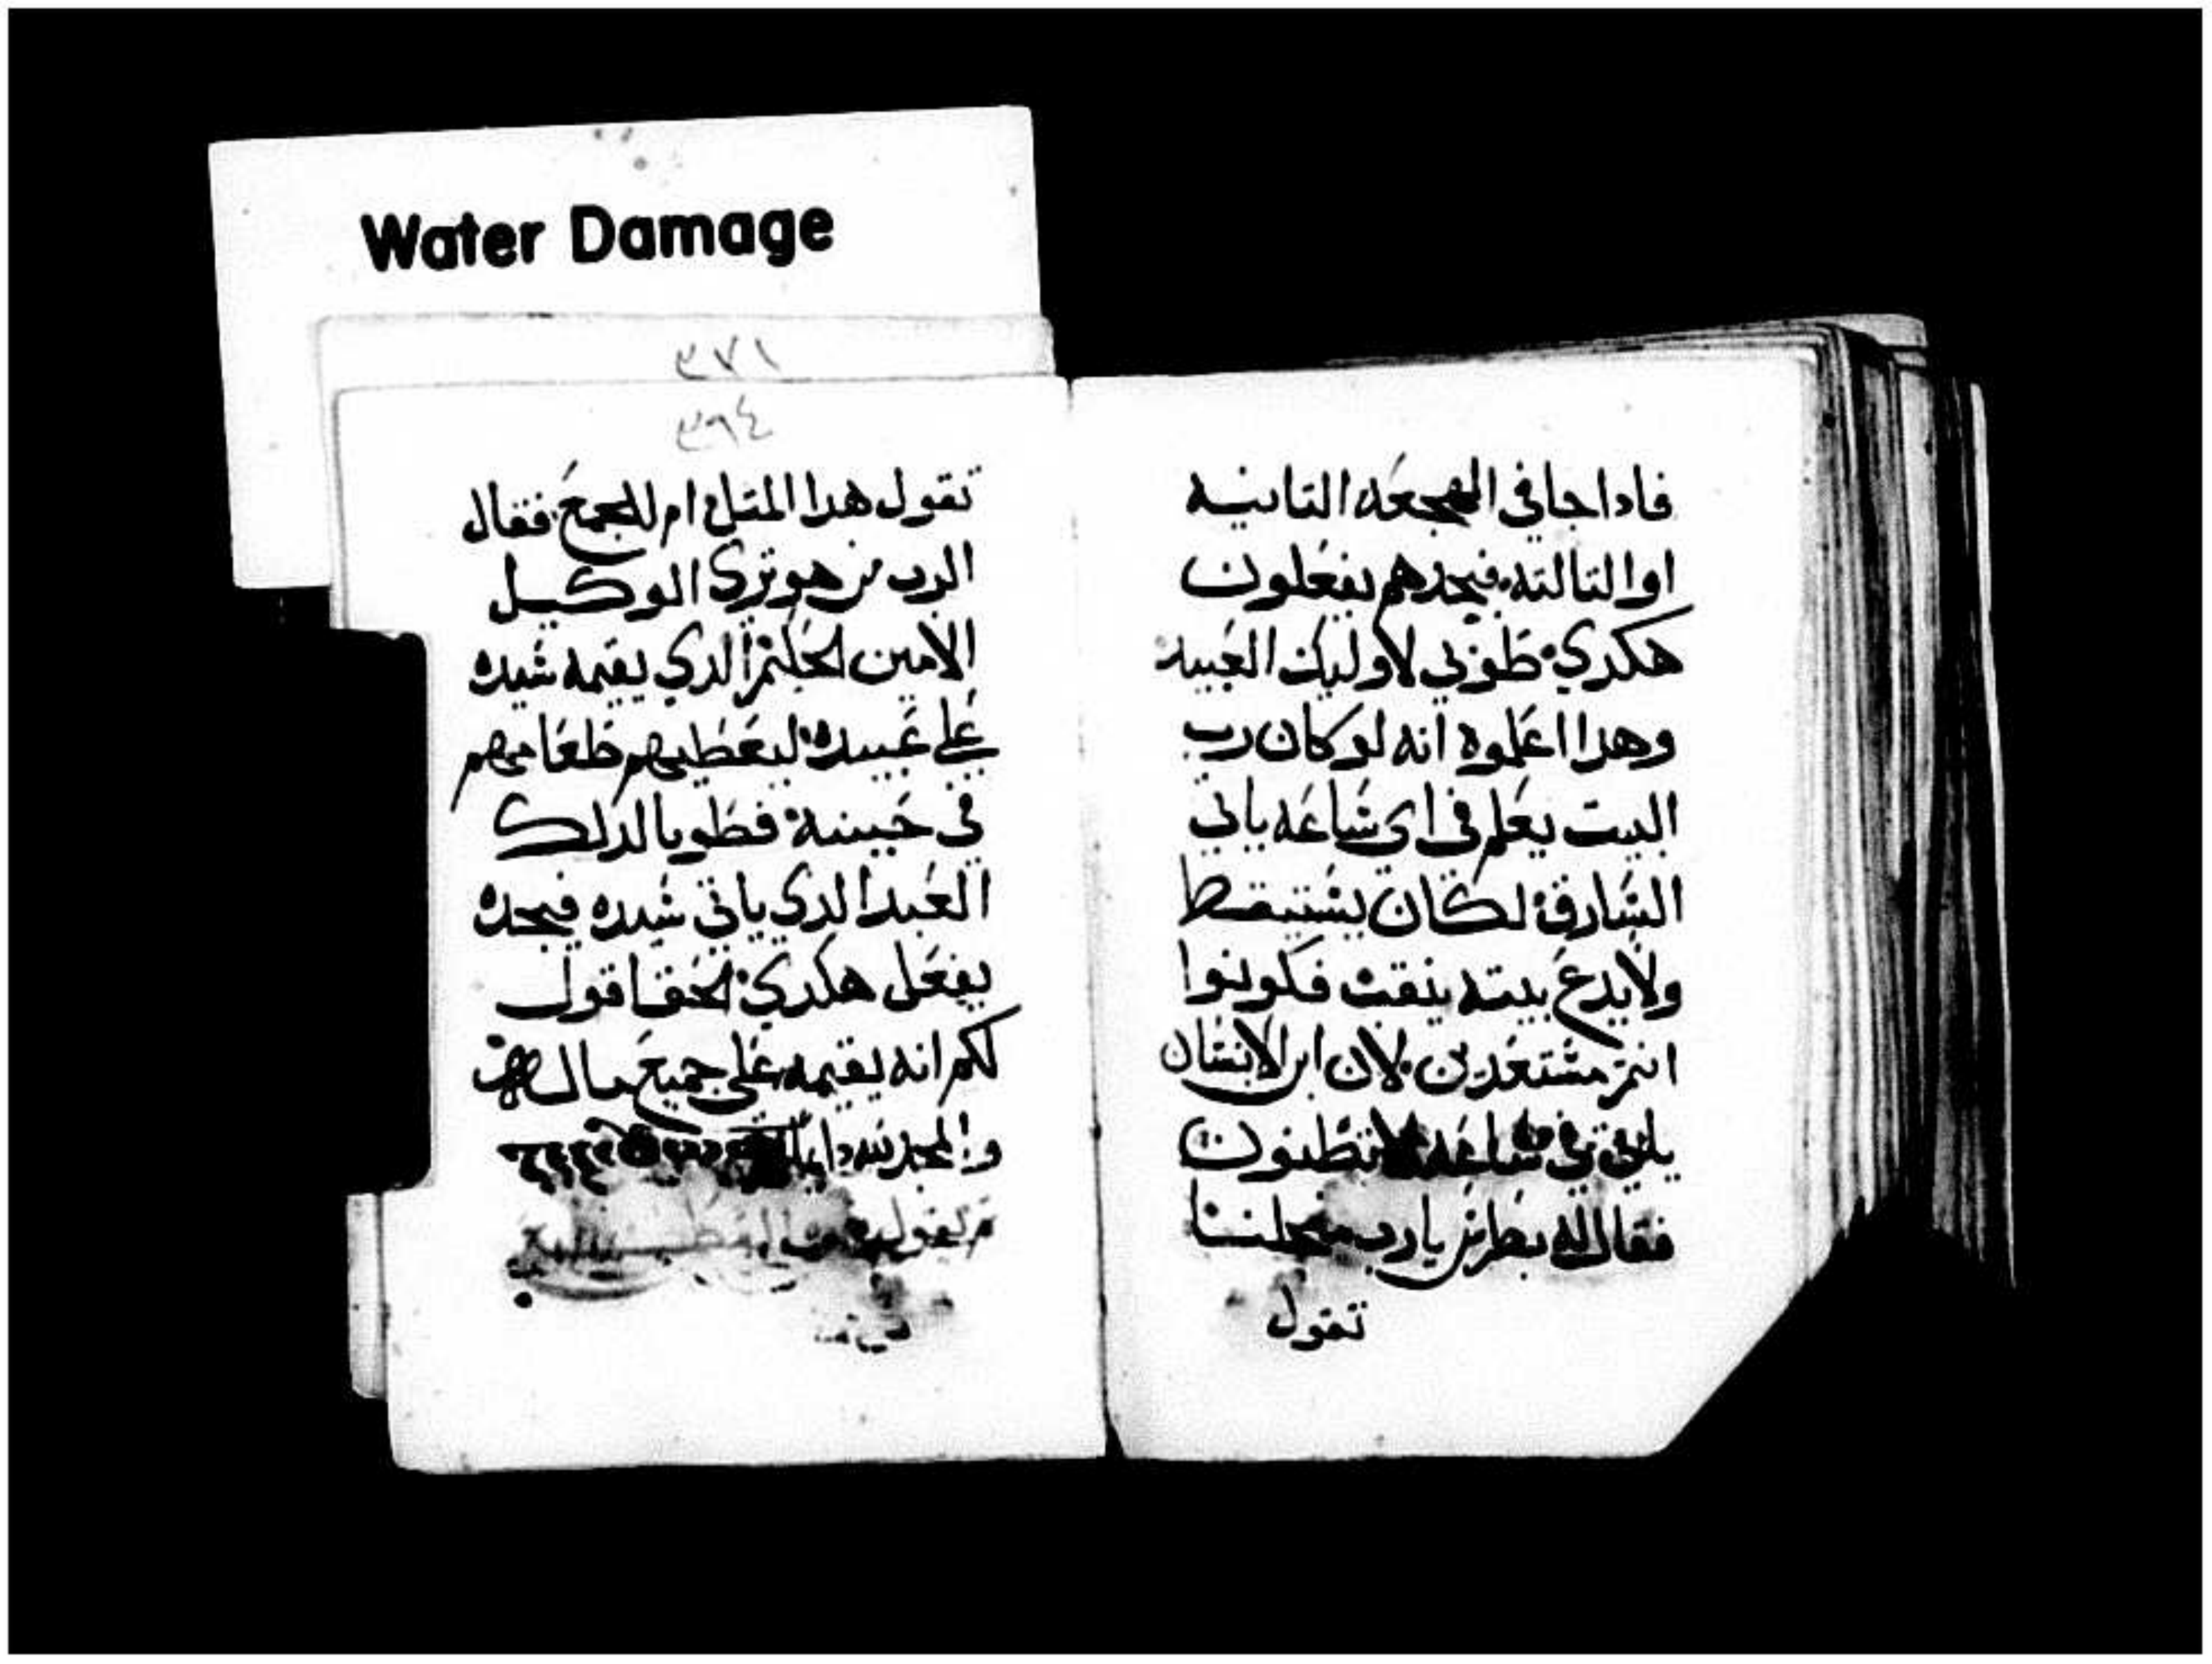 Water Damage
٣٧١
٣٩٤
فاداجا في الهجعه التانيه
او التالته فيجدهم يفعلون
هكدي طوبي لاوليك العبيد
وهدا اعلموه انه لو كان رب
البيت يعلم في اي شاعه ياتي
الشارق لكان يشتيقظ
ولايدع بيته ينقب فكونوا
انتم مشتعدين لان ابن الانشان
ياتي في شاعه لاتظنون
فقال له بطرس يارب من اجلنا
تقول
تقول هدا المتل ام للجمع فقال
الرب من هو تري الوكيل
الامين الحكيم الدي يقيمه شيده
علي عبيده ليعطيهم طعامهم
في حينه فطوبا لدلك
العبد الدي ياتي شيده فيجده
يفعل هكدي الحق اقول
لكم انه يقيمه علي جميع ماله
والمجد لله دايما